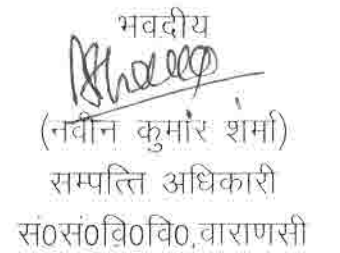 भवदीय
(नवीन कुमार शर्मा)
सम्पत्ति अधिकारी
सं0सं0वि0वि0,वाराणसी